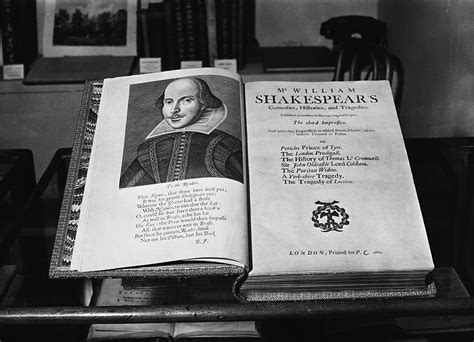 To the Reader.
This Figure, that thou here seest put,
It was for gentle Shakespeare cut:
Wherein the Graver had a strife
With Nature, to out-doe the Life:
O, could he but have drawn his Wit
As well in Brasse, as he has hit
His Face; the Print would then surpasse
All, that was ever writ in Brasse.
But since he cannot, Reader, look
Not on his Picture, but his Book
B. J.
Mr. WILLIAM
SHAKESPEAR'S
Comedies, Histories, and Tragedies.
Published according to the true Original Copies.
The third Impression.
And unto this Impression is added seven Playes, never
before Printed in Folio.
Pericles Prince of Tyre.
The London Prodigall.
The History of Thomas Ld. Cromwell.
Sir John Oldcastle Lord Cobham.
The Puritan Widow.
A York-shire Tragedy.
The Tragedy of Locrine.
LONDON, Printed for P. C.